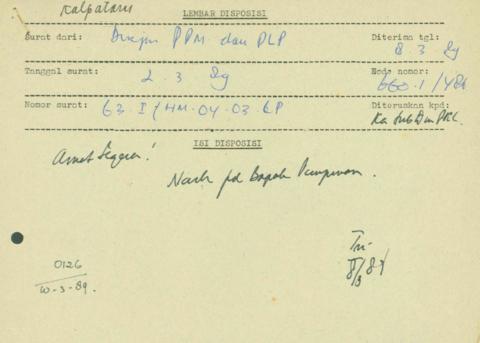 Kalpataru
LEMBAR DISPOSISI
Surat dari: Dirjen PPM dan PLP
Diterima tgl: 8 3 89
Tanggal surat: 2 3 89
Kode nomor: 660.1/486
Nomor surat: 63.I/HM.04.03.EP
Diteruskan kpd: Ka Sub Din PKL.
ISI DISPOSISI
Amat Segera!
Naik pd Bapak Pimpinan.
Tri
8/3 89
0126
10-3-89.